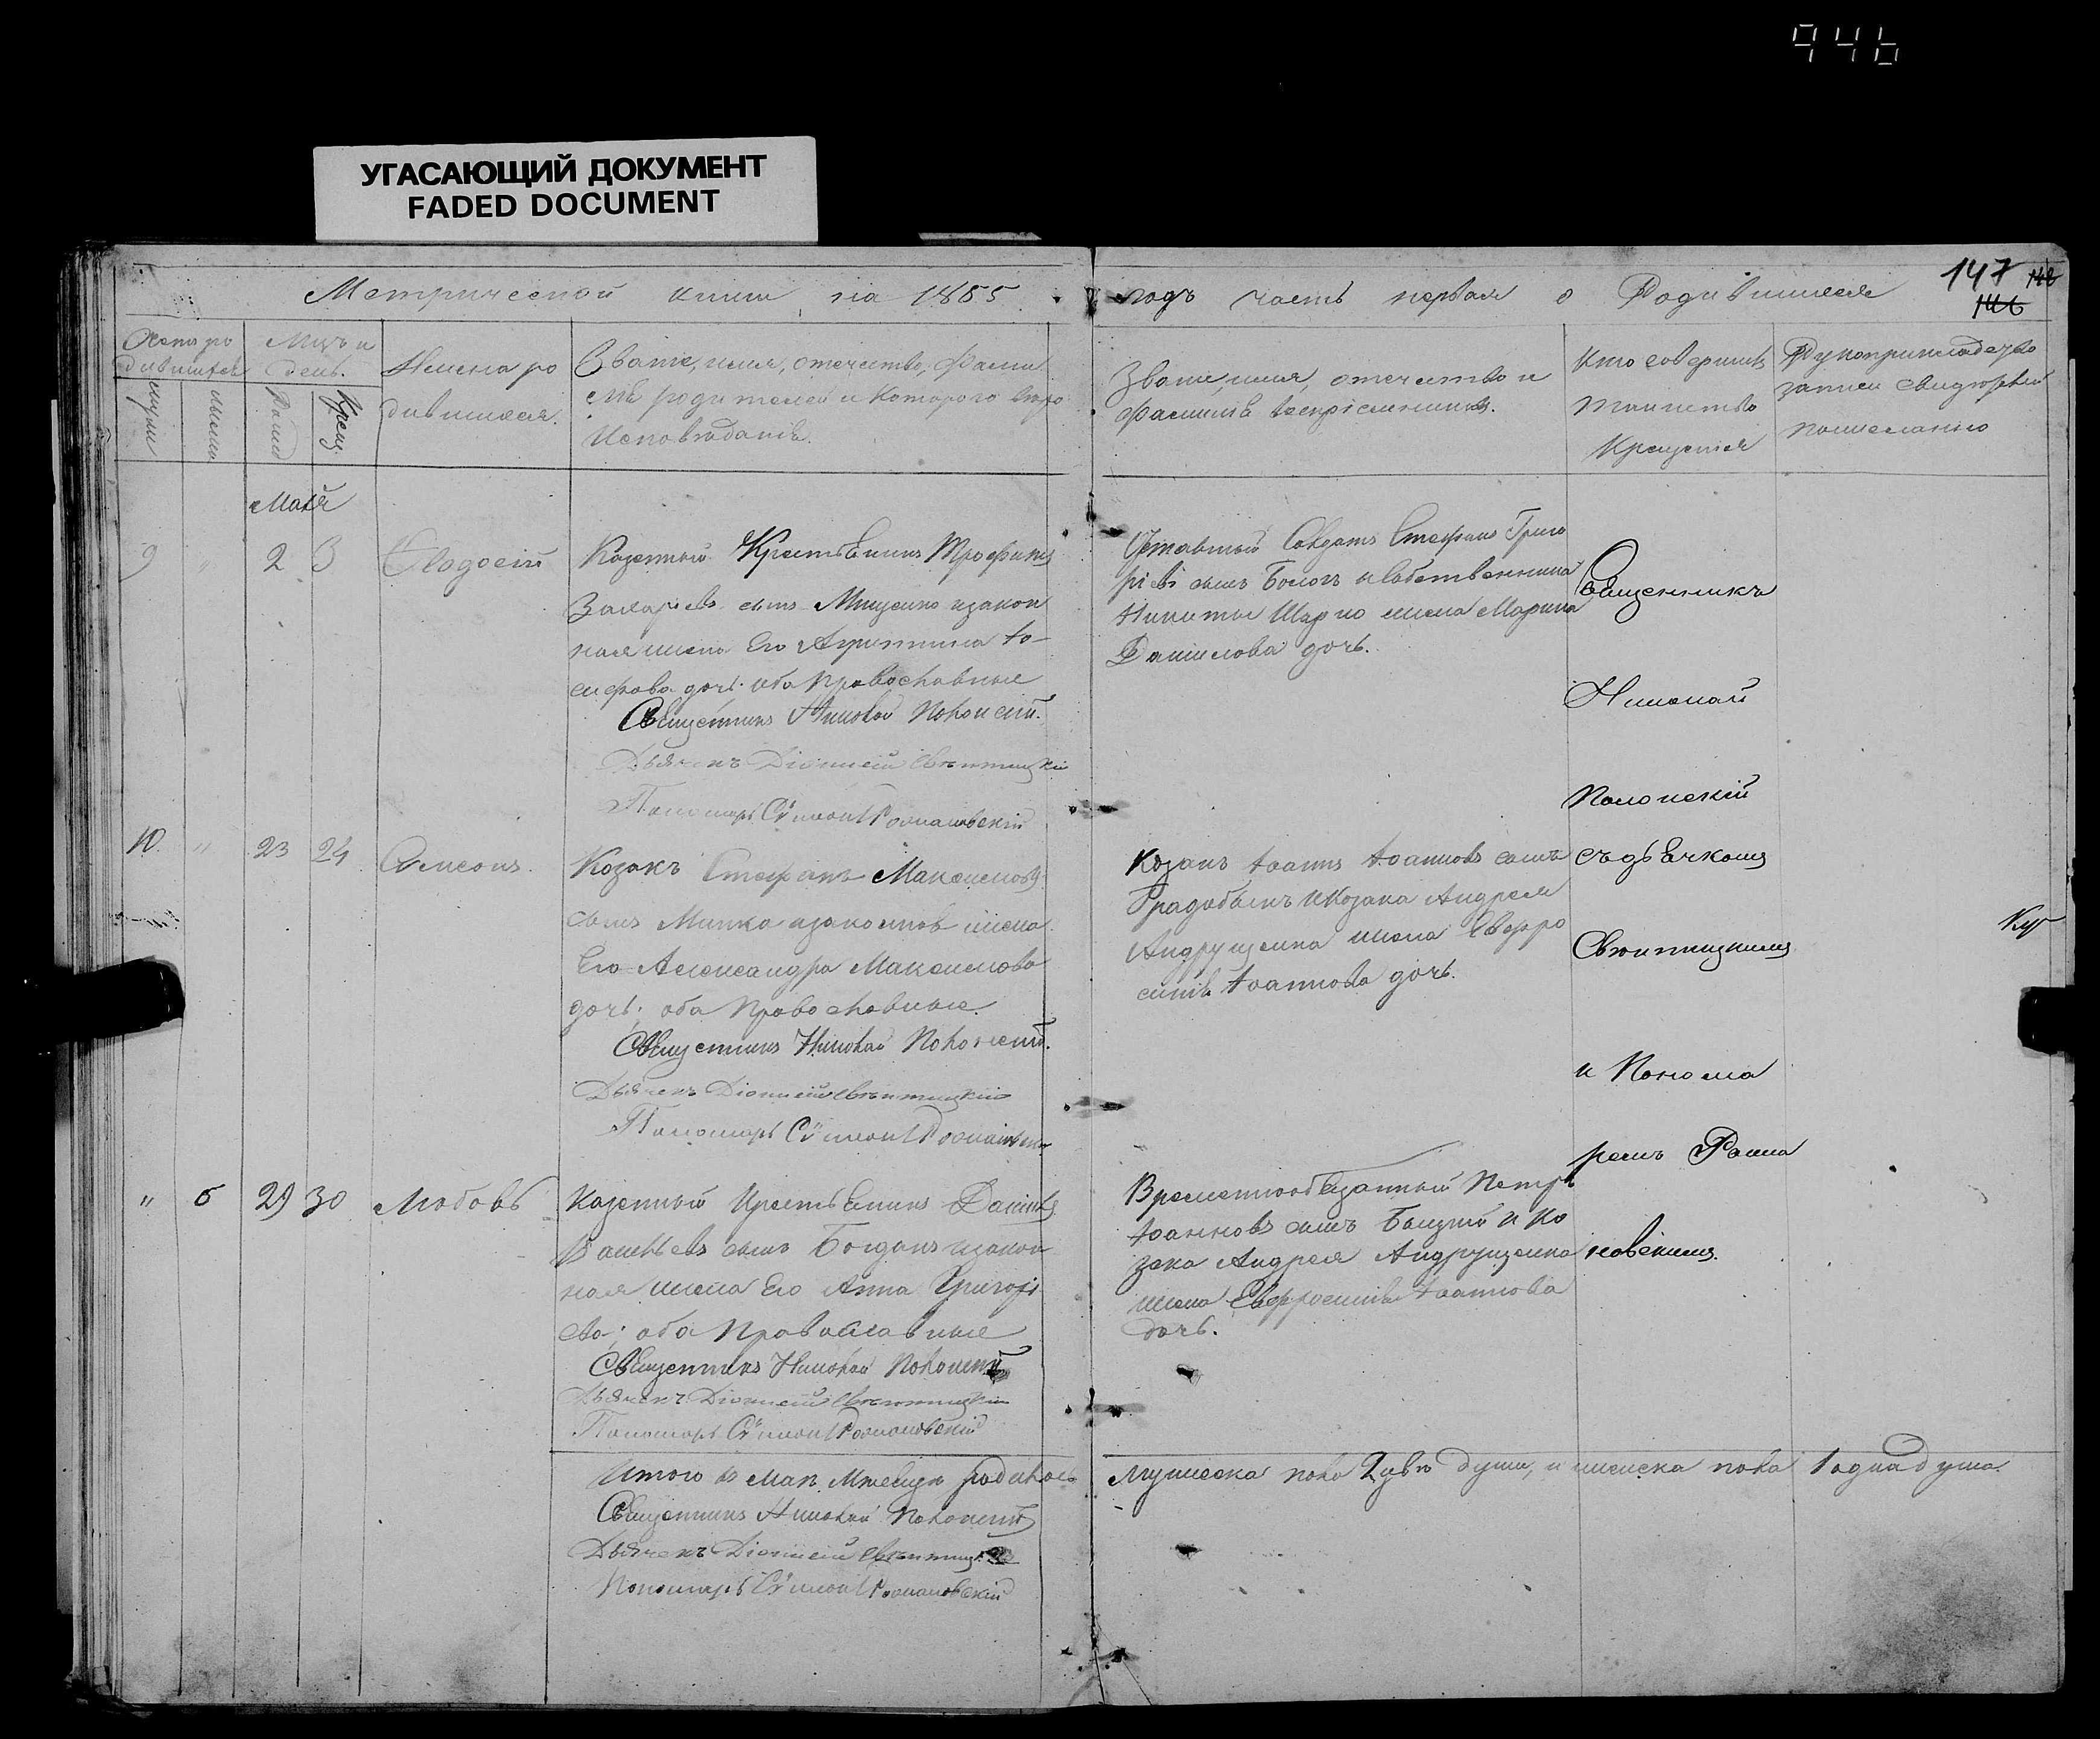 946
УГАСАЮЩИЙ ДОКУМЕНТ
FADED DOCUMENT
147
Метрической книги на 1865
годъ часть первая о Родившихся
Мцъ и
день.
Имена ро
дившихся.
Званіе, имя, отечество, фами
родителей и которого
Исповѣданія.
Званіе, имя, отечество и
фамилія воспріемниковъ.
Кто совершилъ
таинство
Крещенія
Рукоприкладство
записи свидѣтелей
по желанію
Мая
9 " 2 3
Казенный Крестьянинъ Трофимъ
Захаріевъ сынъ Мищенко и закон
ная жена Его Агрипина Іо-
сифова дочь; оба Православные
Священникъ Николай Полонскій.
Дьячекъ Діонисій Свѣнтицкій
Пономарь Сѵмеонъ Романовскій
Отставный Солдатъ Стефанъ Григо
ріевъ сынъ и собственника
Никиты жена Марина
Даніилова дочь.
Священникъ
Николай
Полонскій
съ дьячкомъ
Свѣнтицкимъ
и Понома
ремъ Рома
новскимъ.
10. " 23 24 Симеонъ.
Козакъ Стефанъ Максимовъ
сынъ Минка и законная жена
Его Александра Максимова
дочь; оба Православные.
Священникъ Николай Полонскій.
Дьячекъ Діонисій Свѣнтицкій
Пономарь Сѵмеонъ Романовскій
Козакъ Іоаннъ Іоанновъ сынъ
и Козака Андрея
Андрущенка жена Евфро
синія Іоаннова дочь.
" 6 29 30 Любовь
Казенный Крестьянинъ Даніилъ
Васильевъ сынъ Богданъ и закон
ная жена Его Анна Григорі
ева; оба Православные
Священникъ Николай Полонскій
Дьячекъ Діонисій Свѣнтицкій
Пономарь Сѵмеонъ Романовскій
Временнообязанный Петръ
Іоанновъ сынъ и Ко
зака Андрея Андрущенка
жена Евфросинія Іоаннова
дочь.
Итого въ Маѣ Мѣсяцѣ родилось
мужеска пола 2 двѣ души, и женска пола 1 одна душа.
Священникъ Николай Полонскій
Дьячекъ Діонисій Свѣнтицкій
Пономарь Сѵмеонъ Романовскій